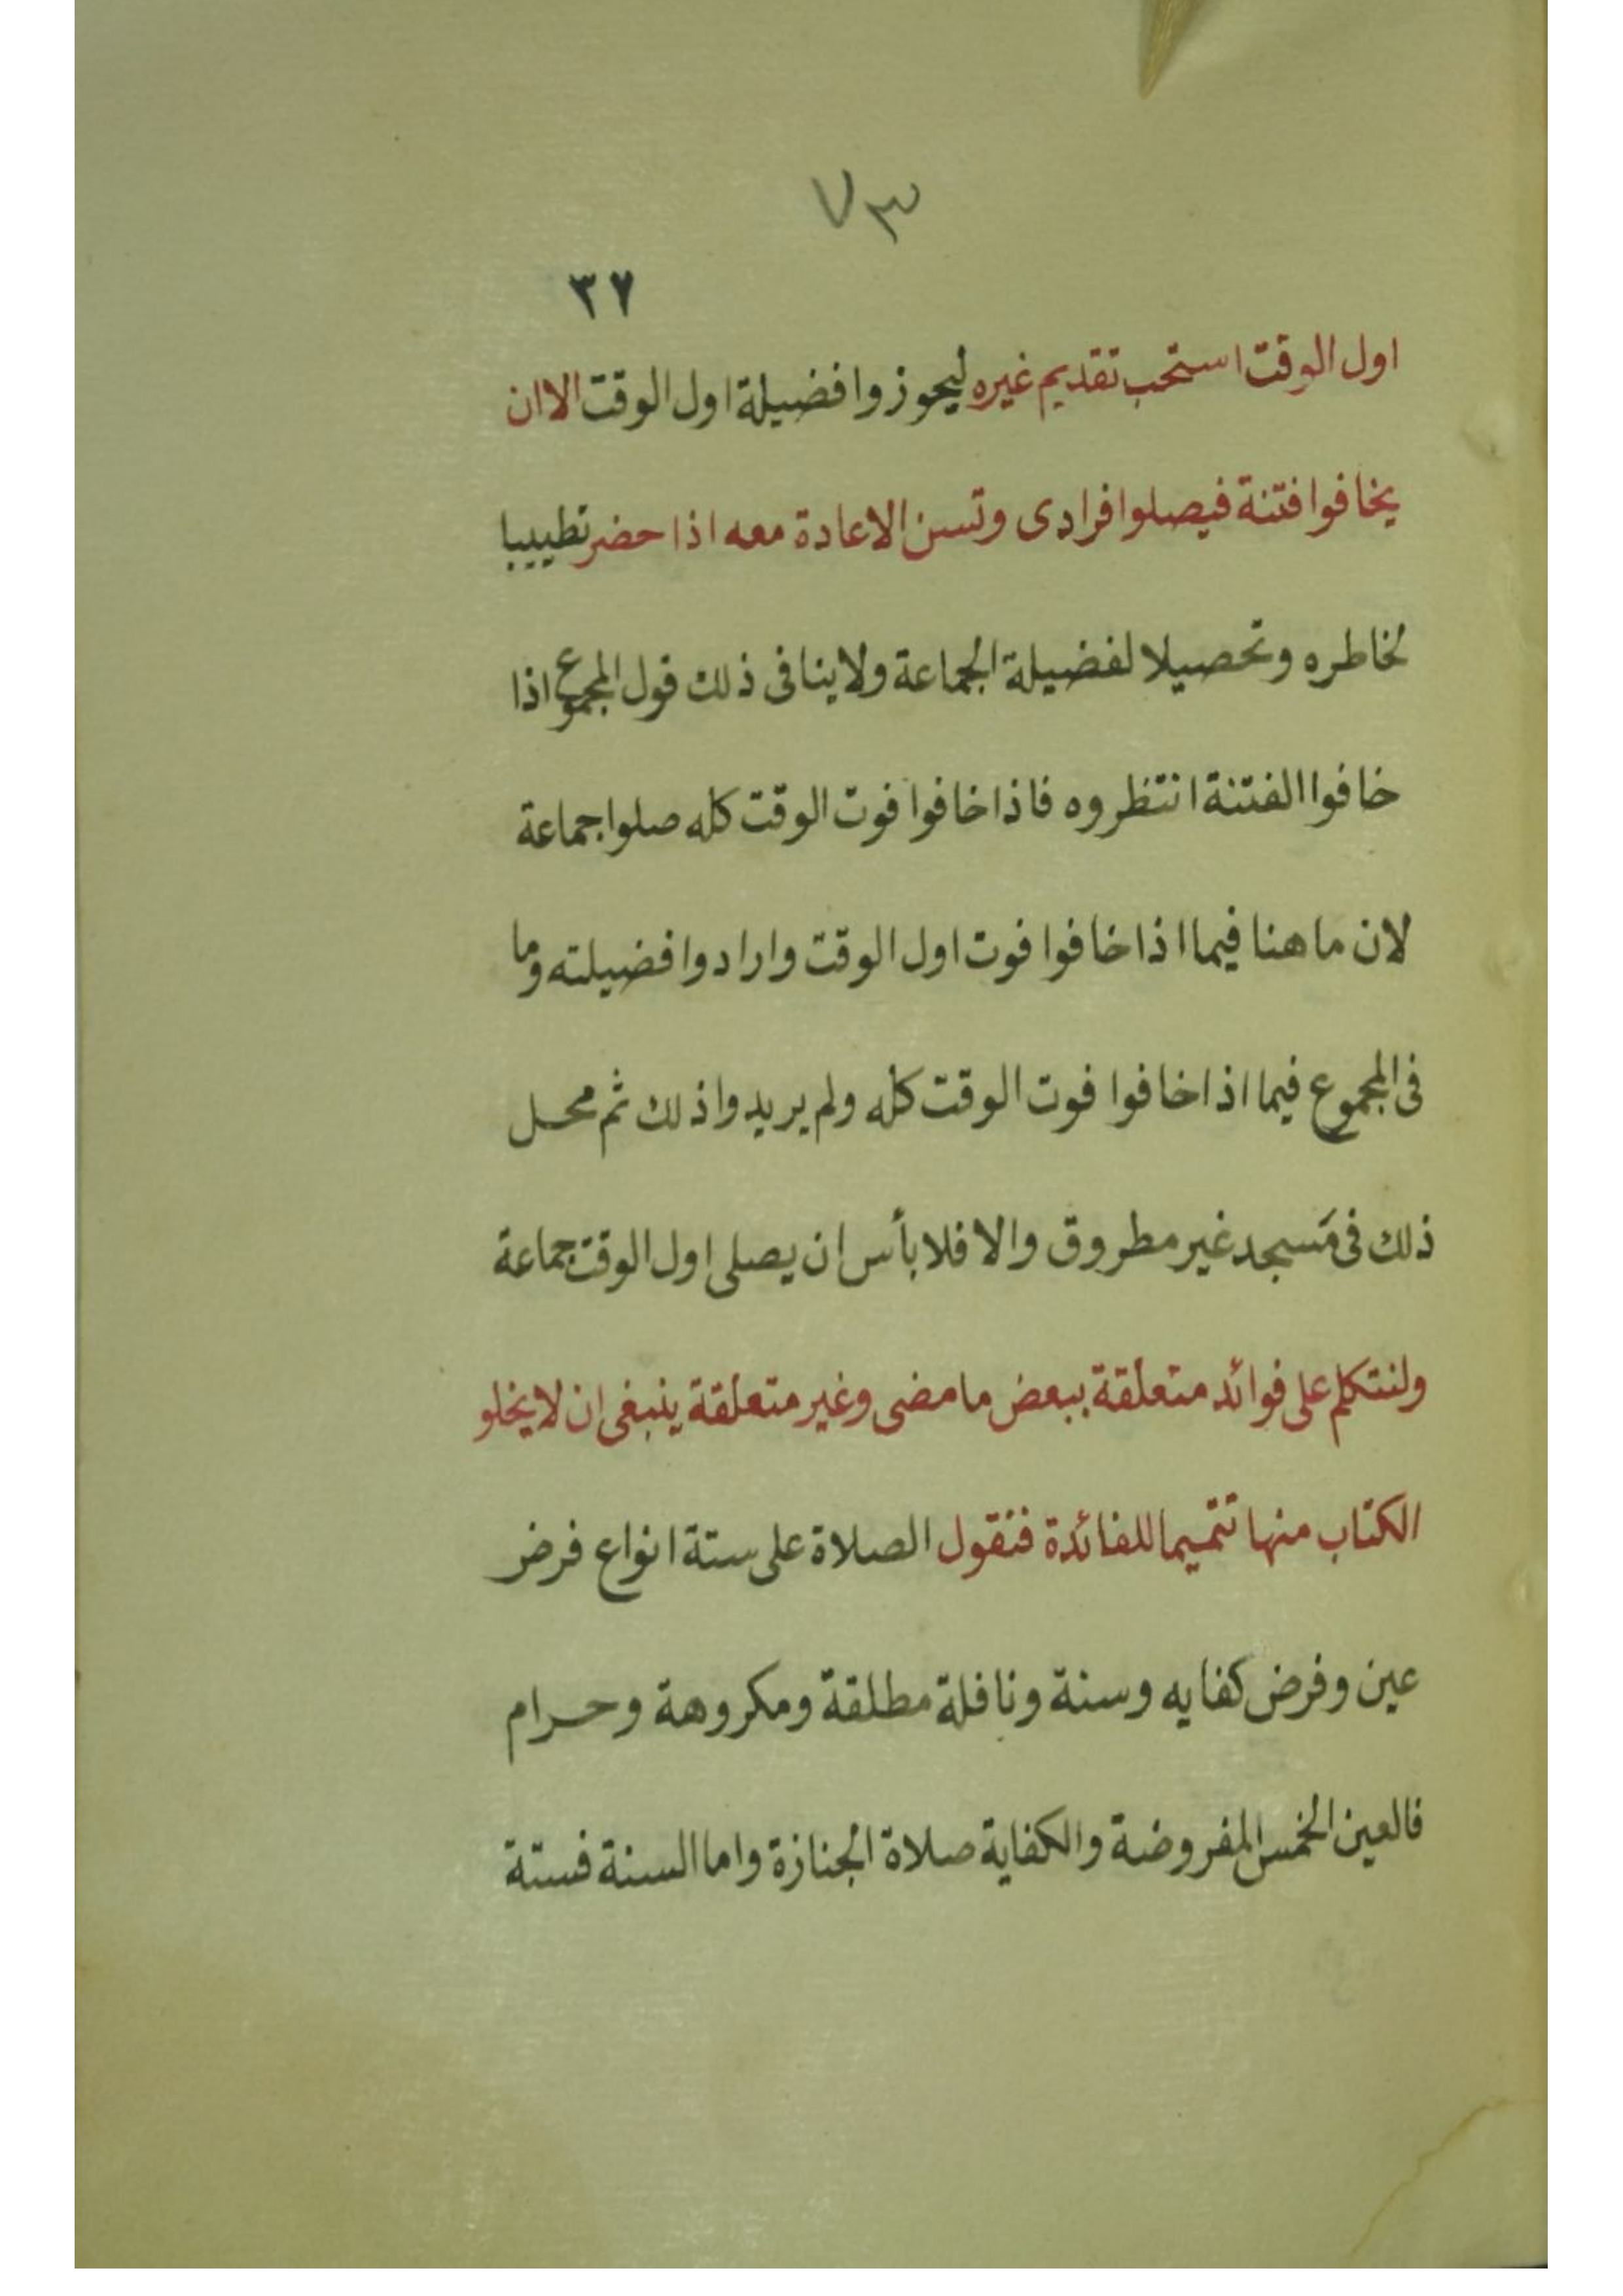 ٧٣
٣٧
اول الوقت استحب تقديم غيره ليحوزوا فضيلة اول الوقت الا ان
يخافوا فتنة فيصلوا فرادى وتسن الاعادة معه اذا حضر تطييبا
لخاطره وتحصيلا لفضيلة الجماعة ولا ينافى ذلك قول المجموع اذا
خافوا الفتنة انتظروه فاذا خافوا فوت الوقت كله صلوا جماعة
لان ما هنا فيما اذا خافوا فوت اول الوقت وارادوا فضيلته وما
فى المجموع فيما اذا خافوا فوت الوقت كله ولم يريدوا ذلك ثم محل
ذلك فى مَسجد غير مطروق والا فلا بأس ان يصلى اول الوقت جماعة
ولنتكلم على فوائد متعلقة ببعض ما مضى وغير متعلقة ينبغى ان لا يخلو
الكتاب منها تتميما للفائدة فنقول الصلاة على ستة انواع فرض
عين وفرض كفايه وسنة ونافلة مطلقة ومكروهة وحرام
فالعين الخمس المفروضة والكفاية صلاة الجنازة واما السنة فستة